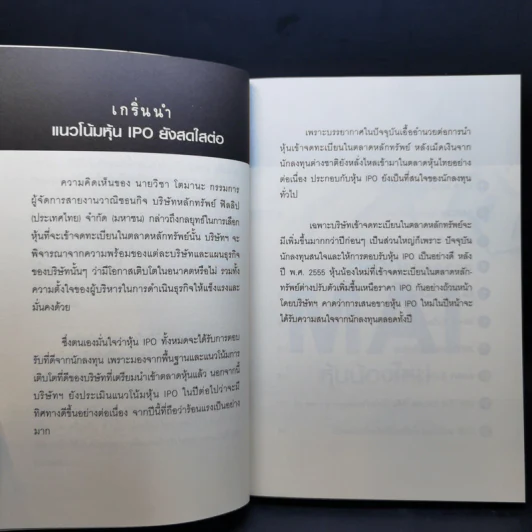 เกริ่นนำ
แนวโน้มหุ้น IPO ยังสดใสต่อ
ความคิดเห็นของ นายวีชา โตมานะ กรรมการ
ผู้จัดการสายงานวาณิชธนกิจ บริษัทหลักทรัพย์ ฟิลลิป
(ประเทศไทย) จำกัด (มหาชน) กล่าวถึงกลยุทธ์ในการเลือก
หุ้นที่จะเข้าจดทะเบียนในตลาดหลักทรัพย์นั้น บริษัทฯ จะ
พิจารณาจากความพร้อมของแต่ละบริษัทและแผนธุรกิจ
ของบริษัทนั้นๆ ว่ามีโอกาสเติบโตในอนาคตหรือไม่ รวมทั้ง
ความตั้งใจของผู้บริหารในการดำเนินธุรกิจให้แข็งแรงและ
มั่นคงด้วย
ซึ่งตนเองมั่นใจว่าหุ้น IPO ทั้งหมดจะได้รับการตอบ
รับที่ดีจากนักลงทุน เพราะมองจากพื้นฐานและแนวโน้มการ
เติบโตที่ดีของบริษัทที่เตรียมนำเข้าตลาดหุ้นแล้ว นอกจากนี้
บริษัทฯ ยังประเมินแนวโน้มหุ้น IPO ในปีต่อไปว่าจะมี
ทิศทางดีขึ้นอย่างต่อเนื่อง จากปีนี้ที่ถือว่าร้อนแรงเป็นอย่าง
มาก
เพราะบรรยากาศในปัจจุบันเอื้ออำนวยต่อการนำ
หุ้นเข้าจดทะเบียนในตลาดหลักทรัพย์ หลังเม็ดเงินจาก
นักลงทุนต่างชาติยังหลั่งไหลเข้ามาในตลาดหุ้นไทยอย่าง
ต่อเนื่อง ประกอบกับหุ้น IPO ยังเป็นที่สนใจของนักลงทุน
ทั่วไป
เฉพาะบริษัทเข้าจดทะเบียนในตลาดหลักทรัพย์จะ
มีเพิ่มขึ้นมากกว่าปีก่อนๆ เป็นส่วนใหญ่ก็เพราะ ปัจจุบัน
นักลงทุนสนใจและให้การตอบรับหุ้น IPO เป็นอย่างดี หลัง
ปี พ.ศ. 2555 หุ้นน้องใหม่ที่เข้าจดทะเบียนในตลาดหลัก-
ทรัพย์ต่างปรับตัวเพิ่มขึ้นเหนือราคา IPO กันอย่างถ้วนหน้า
โดยบริษัทฯ คาดว่าการเสนอขายหุ้น IPO ใหม่ในปีหน้าจะ
ได้รับความสนใจจากนักลงทุนตลอดทั้งปี